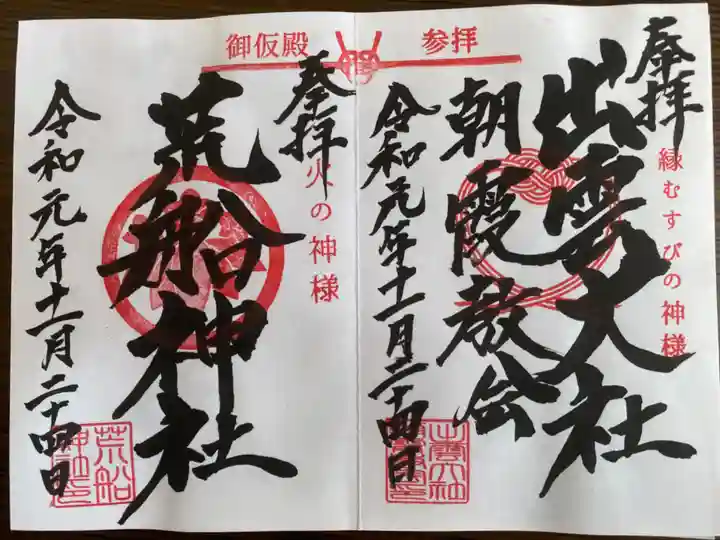 御仮殿 参拝
奉拝
縁むすびの神様
出雲大社
朝霞教会
令和元年十一月二十四日
奉拝
火の神様
荒船神社
令和元年十一月二十四日
荒船
神社印